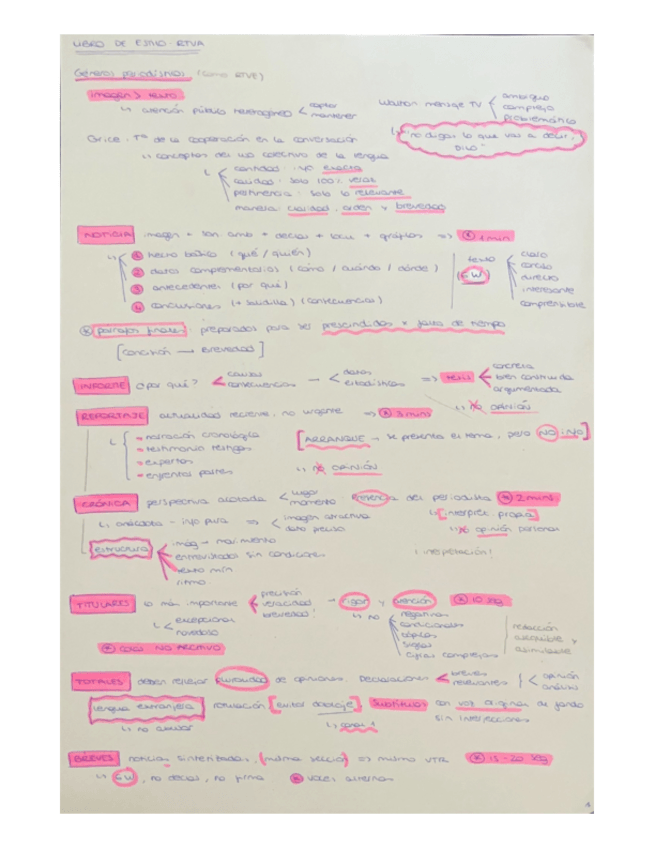 LIBRO DE ESTILO RTVA
Géneros periodísticos (como RTVE)
imagen > texto
↳ atención público heterogéneo < captar
mantener
Watson mensaje TV < amarguo
complejo
problemático
Grice: Tª de la cooperación en la conversación
"no digas lo que vas a decir, DILO"
↳ conceptos del uso colectivo de la lengua
↳ cantidad: info exacta
calidad: solo 100% veraz
pertinencia: solo lo relevante
manera: claridad, orden y brevedad
NOTICIA imagen + son. amb + declas + locu + gráficos => 1 min
↳ 1 hecho básico (qué / quién)
2 datos complementarios (cómo / cuándo / dónde)
3 antecedentes (por qué)
4 conclusiones (+ salidilla) (consecuencias)
texto (6W) < claro
conciso
directo
interesante
comprensible
párrafos finales preparados para ser prescindidos x falta de tiempo
[concisión → brevedad]
INFORME ¿por qué? < causas
consecuencias → < datos
estadísticas => tesis < concreta
bien construida
argumentada
↳ NO OPINIÓN
REPORTAJE actualidad reciente, no urgente => 3 mins
↳ - narración cronológica
- testimonio testigos
- expertos
- enfrentar partes
[ARRANQUE → se presenta el tema, pero NO info]
↳ NO OPINIÓN
CRÓNICA perspectiva acotada < lugar
momento
presencia del periodista 2 mins
↳ anécdota - info pura => < imagen atractiva
dato preciso
↳ [interpret. propia]
↳ no opinión personal
estructura < imág → movimiento
entrevistados sin condiciones
texto mín
ritmo
TITULARES lo más importante < precisión
veracidad
brevedad! → rigor y atención 10 sg
↳ < excepcional
novedoso
↳ no < negativos
condicionales
tópicos
siglas
cifras complejas
redacción
asequible y
asimilable
cola NO ARCHIVO
TOTALES deben reflejar pluralidad de opiniones. Declaraciones < breves
relevantes < opinión
análisis
lengua extranjera rotulación [evitar doblaje] subtítulos con voz original de fondo
↳ no abusar
sin interjecciones
BREVES noticias sintetizadas, (misma sección) => mismo VTR 15 - 20 sg
↳ 6W, no declas, no firma voces alternas